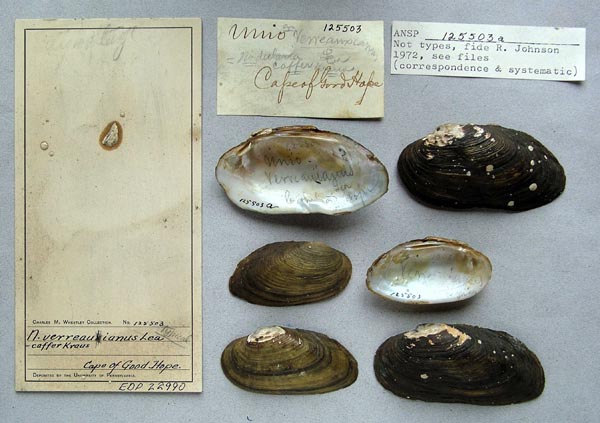 CHARLES M. WHEATLEY COLLECTION. No. 125503
N. verreauxianus Lea
-caffer Kraus
Cape of Good Hope.
DEPOSITED BY THE UNIVERSITY OF PENNSYLVANIA.
EDP 22990
125503
Unio
Verreauxianus
Cape of Good Hope
ANSP 125503a
Not types, fide R. Johnson
1972, see files
(correspondence & systematic)
Unio
125503a
125503